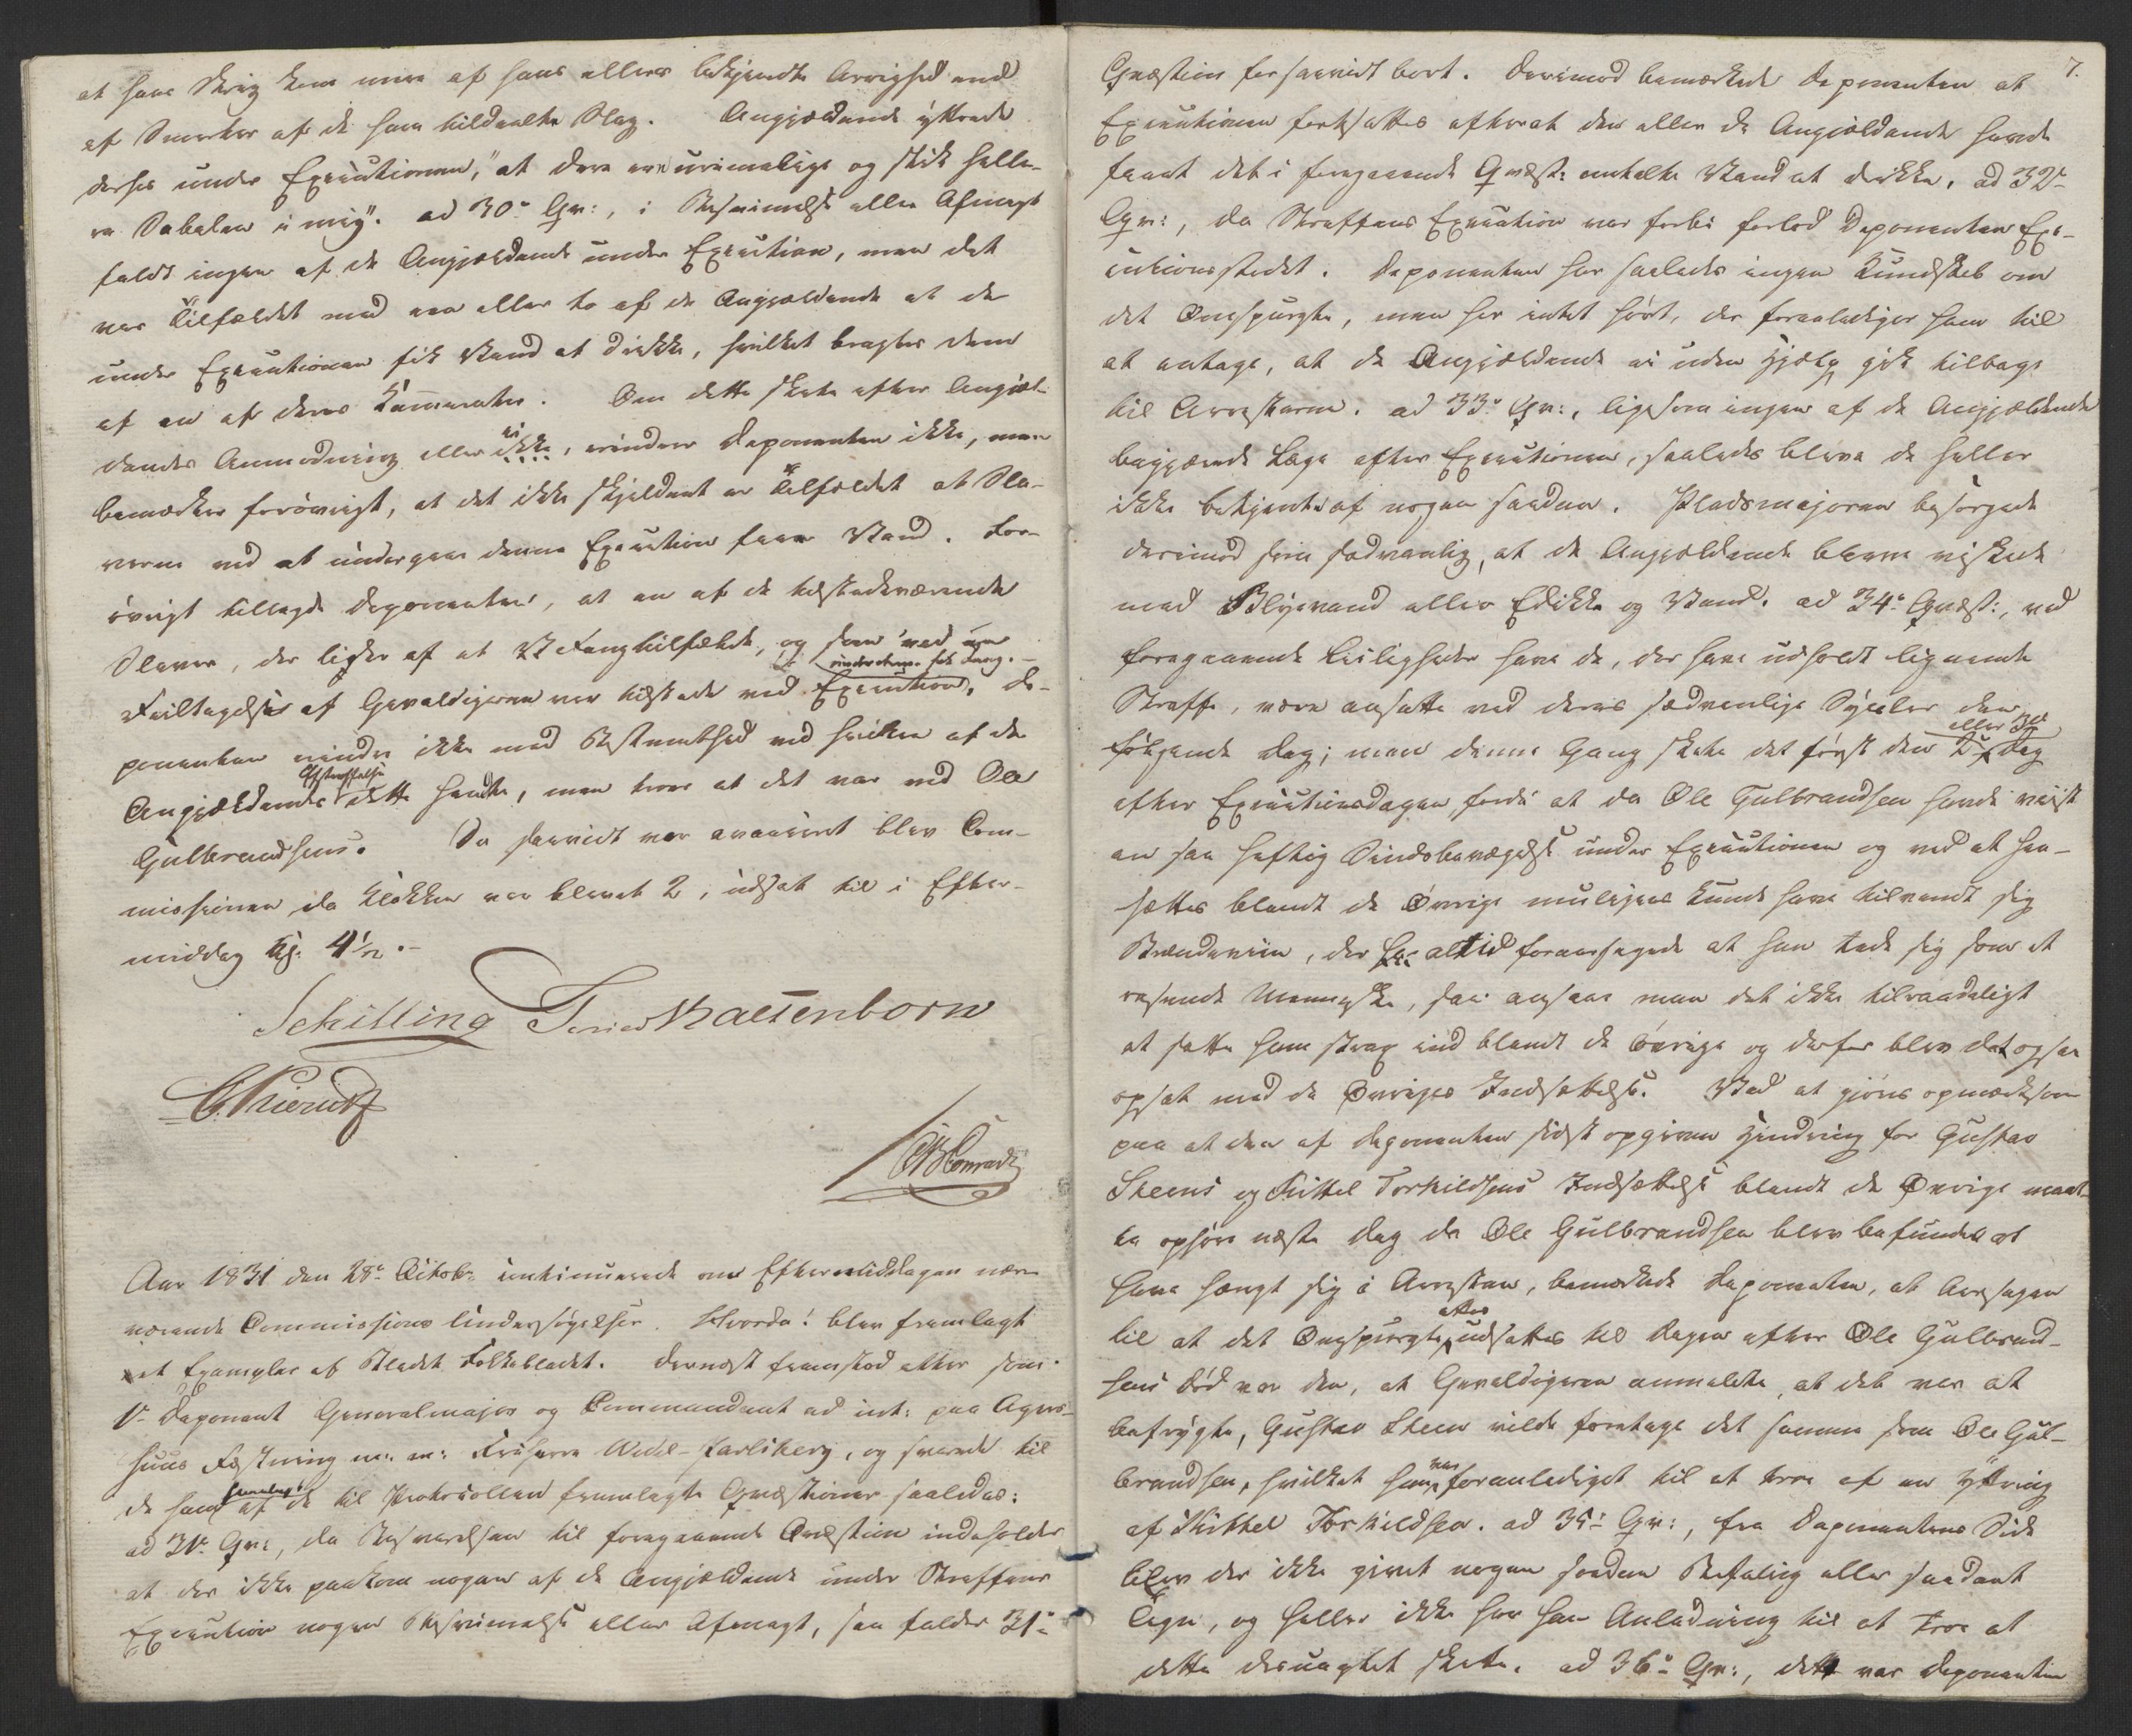 at hans Skrig kom mere af hans ellers bekjendte Arrighed end
af Smerter af de ham tildeelte Slag. Angjældende yttrede
derhos under Executionen, "at dere ere urimelige og stik heller
en Sabelen i mig". ad 30te Qv:, i Besvimelse eller Afmagt
faldt ingen af de Angjældende under Execution, men det
var Tilfældet med een eller to af de Angjældende at de
under Executionen fik Vand at drikke, hvilket bragtes dem
af en af deres Kammerater. Om dette skete efter Angjæl-
dendes Anmodning eller ei ikke, erindrer Deponenten ikke, men
bemærker forøvrigt, at det ikke skjeldent er Tilfældet at Sla-
verne ved at undergaae denne Execution faaer Vand. For-
øvrigt tillagde Deponenten, at en af de tilstedeværende
Slaver, der lider af et Tilfælde, og som ved en
Feiltagelse af Gevaldigeren var tilstede ved Execution, De-
ponenten erindrer ikke med Bestemthed ved hvilken af de
Angjældendes Afstraffelse dette hændte, men troer at det var ved Ole
Gulbrandsens. Da saavidt var avanceret blev Com-
missionen, da Klokken var blevet 2, udsat til i Efter-
middag Kl. 4 1/2.-
Schilling Kaltenborn
C. Conradi
Aar 1831 den 28de Octobr. continuerede om Eftermiddagen nær-
værende Commissions Undersøgelser. Hvorda! blev fremlagt
et Exemplar af Bladet Folkebladet. Dernæst fremstod atter som
1ste Deponent Generalmajor og Commandant ad int: paa Agers-
huus Fæstning m: m: Friherre Wedel-Jarlsberg, og svarede til
de ham af de til Protocollen fremlagte Qvæstioner saaledes:
ad 31te Qv:, da Besvarelsen til foregaaende Qvæstion indeholder
at der ikke paakom nogen af de Angjældende under Straffens
Execution nogen Besvimelse eller Afmagt, saa falder 31te
7.
Qvæstion forsaavidt bort. Derimod bemærkede Deponenten at
Executionen fortsattes efterat den eller de Angjældende havde
faaet det i foregaaende Qvæst: omtalte Vand at drikke. ad 32te
Qv:, da Straffens Execution var forbi forlod Deponenten Exe-
cutionsstedet. Deponenten har saaledes ingen Kundskab om
det Omspurgte, men har intet hørt, der foranlediger ham til
at antage, at de Angjældende ei uden Hjelp gik tilbage
til Arresterne. ad 33te Qv:, ligesom ingen af de Angjældende
begjærede Læge efter Executionen, saaledes bleve de heller
ikke betjente af nogen saadan. Pladsmajoren besørgede
derimod som sædvanlig, at de Angjældende bleve viskede
med Blyevand eller Edikke og Vand. ad 34te Qvæst:, ved
foregaaende Leiligheder have de, der have udholdt lignende
Straffe, være ansatte ved deres sædvanlige Sysler den
følgende Dag; men denne Gang skete det først den 2den eller 3die Dag
efter Executionsdagen, fordi at da Ole Gulbrandsen havde viist
en saa heftig Sindsbevægelse under Executionen og ved at hen-
sættes blandt de Øvrige muligens kunde have tilvendt sig
Brændeviin, der altid foraarsagede at han tede sig som et
rasende Menneske, saa ansaae man det ikke tilraadeligt
at sætte ham strax ind blandt de Øvrige og derfor blev det ogsaa
opsat med de Øvriges Indsættelse. Ved at gjøres opmærksom
paa at den af Deponenten sidst opgivne Hindring for Gustav
Steens og Kittel Torkildsens Indsættelse blandt de Øvrige maat-
te ophøre næste Dag da Ole Gulbrandsen blev befunden at
have hængt sig i Arresten, bemærkede Deponenten, at Aarsagen
til at det Omspurgte udsattes til Dagen efter Ole Gulbrand-
sens Død var den, at Gevaldigeren anmeldte, at det var at
befrygte, Gustav Steen vilde foretage det samme som Ole Gul-
brandsen, hvilket han var foranlediget til at troe af en Yttring
af Kittel Torkildsen. ad 35te Qv:, fra Deponentens Side
blev der ikke givet nogen saadan Befaling eller saadant
Tegn, og heller ikke har han Anledning til at troe at
dette desuagtet skete. ad 36te Qv:, dette var Deponenten